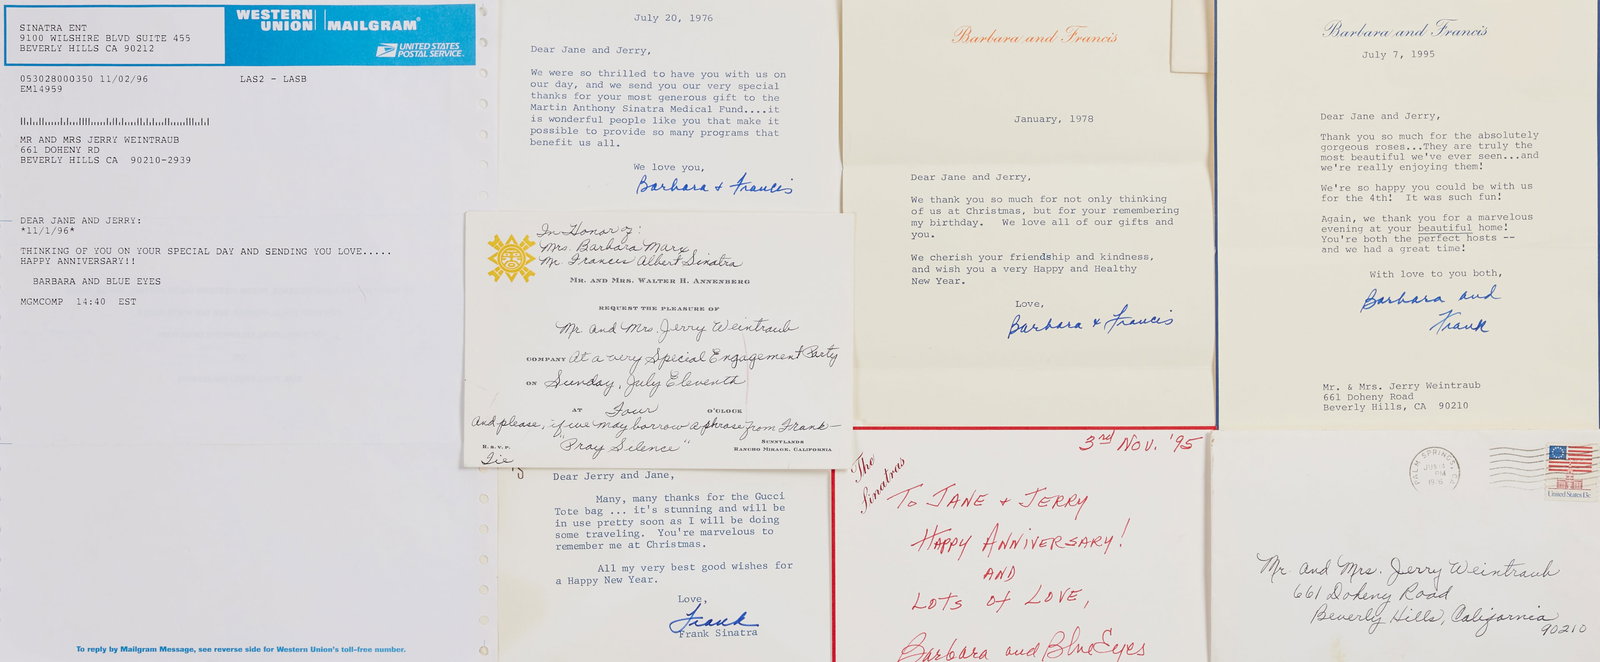 SINATRA ENT
9100 WILSHIRE BLVD SUITE 455
BEVERLY HILLS CA 90212
WESTERN UNION | MAILGRAM
UNITED STATES
POSTAL SERVICE
053028000350 11/02/96 LAS2 - LASB
EM14959
MR AND MRS JERRY WEINTRAUB
661 DOHENY RD
BEVERLY HILLS CA 90210-2939
DEAR JANE AND JERRY:
*11/1/96*
THINKING OF YOU ON YOUR SPECIAL DAY AND SENDING YOU LOVE.....
HAPPY ANNIVERSARY!!
BARBARA AND BLUE EYES
MGMCOMP 14:40 EST
To reply by Mailgram Message, see reverse side for Western Union's toll-free number.
July 20, 1976
Dear Jane and Jerry,
We were so thrilled to have you with us on
our day, and we send you our very special
thanks for your most generous gift to the
Martin Anthony Sinatra Medical Fund....it
is wonderful people like you that make it
possible to provide so many programs that
benefit us all.
We love you,
Barbara + Francis
In Honor of:
Mrs. Barbara Marx
Mr. Francis Albert Sinatra
MR. AND MRS. WALTER H. ANNENBERG
REQUEST THE PLEASURE OF
Mr. and Mrs. Jerry Weintraub
COMPANY At a very Special Engagement Party
ON Sunday, July Eleventh
AT Four O'CLOCK
And please, if we may borrow a phrase from Frank—
"Pray Silence"
R.S.V.P.
Tie
SUNNYLANDS
RANCHO MIRAGE, CALIFORNIA
Dear Jerry and Jane,
Many, many thanks for the Gucci
Tote bag ... it's stunning and will be
in use pretty soon as I will be doing
some traveling. You're marvelous to
remember me at Christmas.
All my very best good wishes for
a Happy New Year.
Love,
Frank
Frank Sinatra
Barbara and Francis
January, 1978
Dear Jane and Jerry,
We thank you so much for not only thinking
of us at Christmas, but for your remembering
my birthday. We love all of our gifts and
you.
We cherish your friendship and kindness,
and wish you a very Happy and Healthy
New Year.
Love,
Barbara & Francis
The
Sinatras
3rd Nov. '95
To JANE + JERRY
HAPPY ANNIVERSARY!
AND
LOTS of LOVE,
Barbara and Blue Eyes
Barbara and Francis
July 7, 1995
Dear Jane and Jerry,
Thank you so much for the absolutely
gorgeous roses...They are truly the
most beautiful we've ever seen...and
we're really enjoying them!
We're so happy you could be with us
for the 4th! It was such fun!
Again, we thank you for a marvelous
evening at your beautiful home!
You're both the perfect hosts --
and we had a great time!
With love to you both,
Barbara and
Frank
Mr. & Mrs. Jerry Weintraub
661 Doheny Road
Beverly Hills, CA 90210
PALM SPRINGS, CA
PM
1976
United States 13c
Mr. and Mrs. Jerry Weintraub
661 Doheny Road
Beverly Hills, California
90210